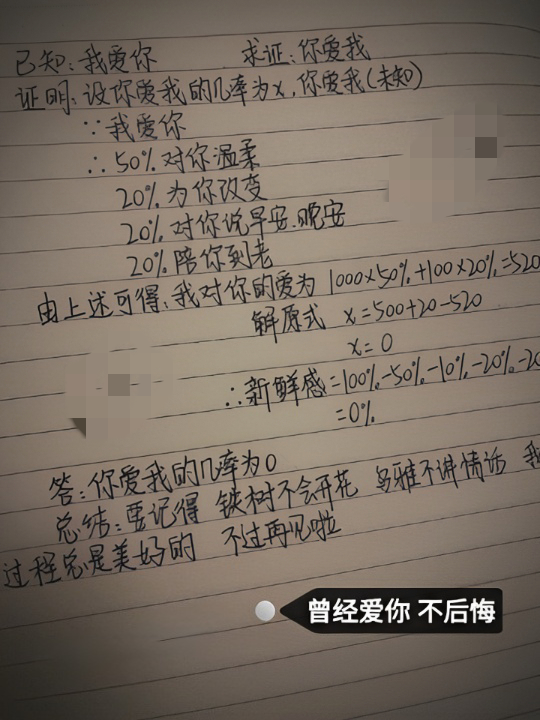 已知：我爱你 求证：你爱我
证明：设你爱我的几率为x，你爱我(未知)
∵我爱你
∴50%对你温柔
20%为你改变
20%对你说早安.晚安
20%陪你到老
由上述可得：我对你的爱为 1000×50%+100×20%=520
解原式 x=500+20-520
x=0
∴新鲜感=100%-50%-10%-20%-20
=0%
答：你爱我的几率为0
总结：要记得 铁树不会开花 乌雅不讲情话 我
过程总是美好的 不过再见啦
曾经爱你 不后悔